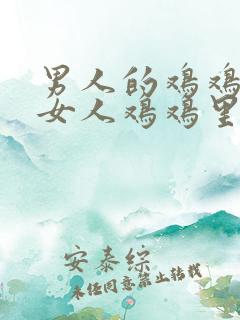 男人的鸡鸡
女人鸡鸡里
安泰综
未经同意禁止转载